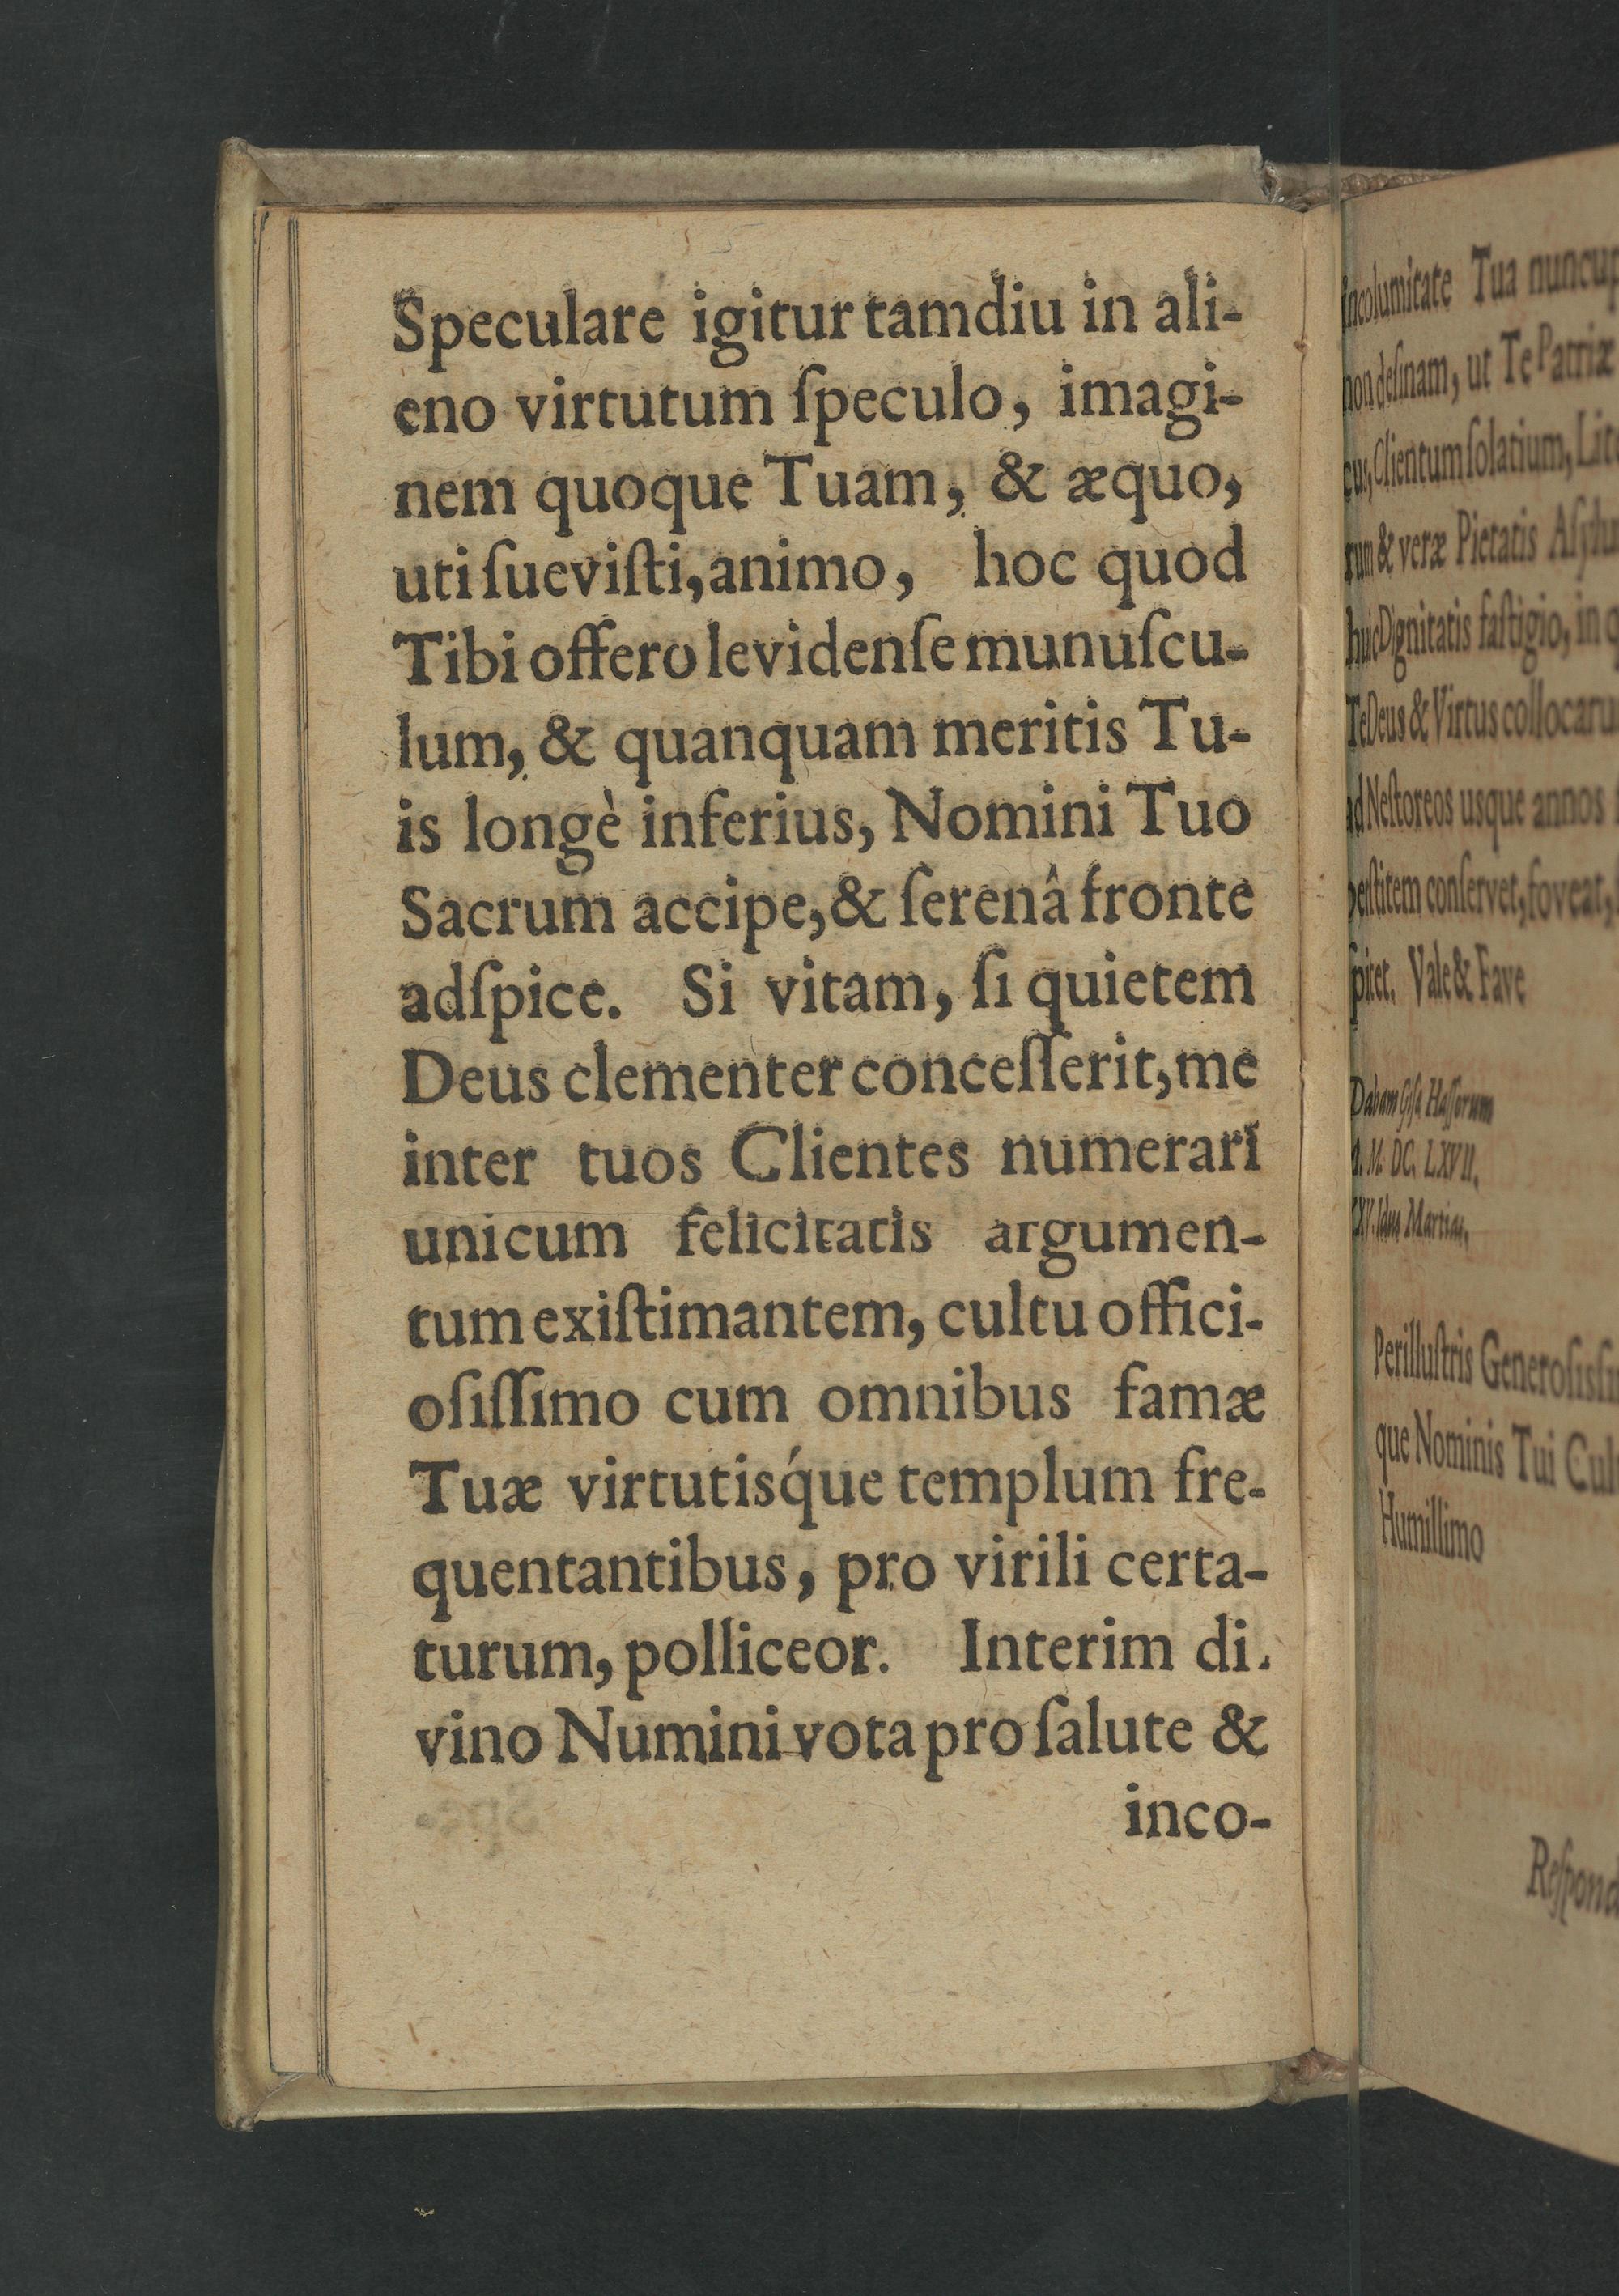 Speculare igitur tamdiu in ali-
eno virtutum ſpeculo, imagi-
nem quoque Tuam, & æquo,
uti ſueviſti, animo, hoc quod
Tibi offero levidenſe munuſcu-
lum, & quanquam meritis Tu-
is longè inferius, Nomini Tuo
Sacrum accipe, & ſerenâ fronte
adſpice. Si vitam, ſi quietem
Deus clementer conceſſerit, me
inter tuos Clientes numerari
unicum felicitatis argumen-
tum exiſtimantem, cultu offici-
oſiſſimo cum omnibus famæ
Tuæ virtutisq́ue templum fre-
quentantibus, pro virili certa-
turum, polliceor. Interim di.
vino Numini vota pro ſalute &
inco-
incolumitate Tua
non deſinam, ut Te Patriæ
Clientum ſolatium,
& veræ Pietatis
huic Dignitatis faſtigio, in
Te Deus & Virtus
ad Neſtoreos usque annos
conſervet, foveat,
ſpitet. Vale & Fave
Dabam Giſſæ Haſſorum
M. DC. LXVII.
Martias,
Perilluſtris
que Nominis Tui
Humillimo